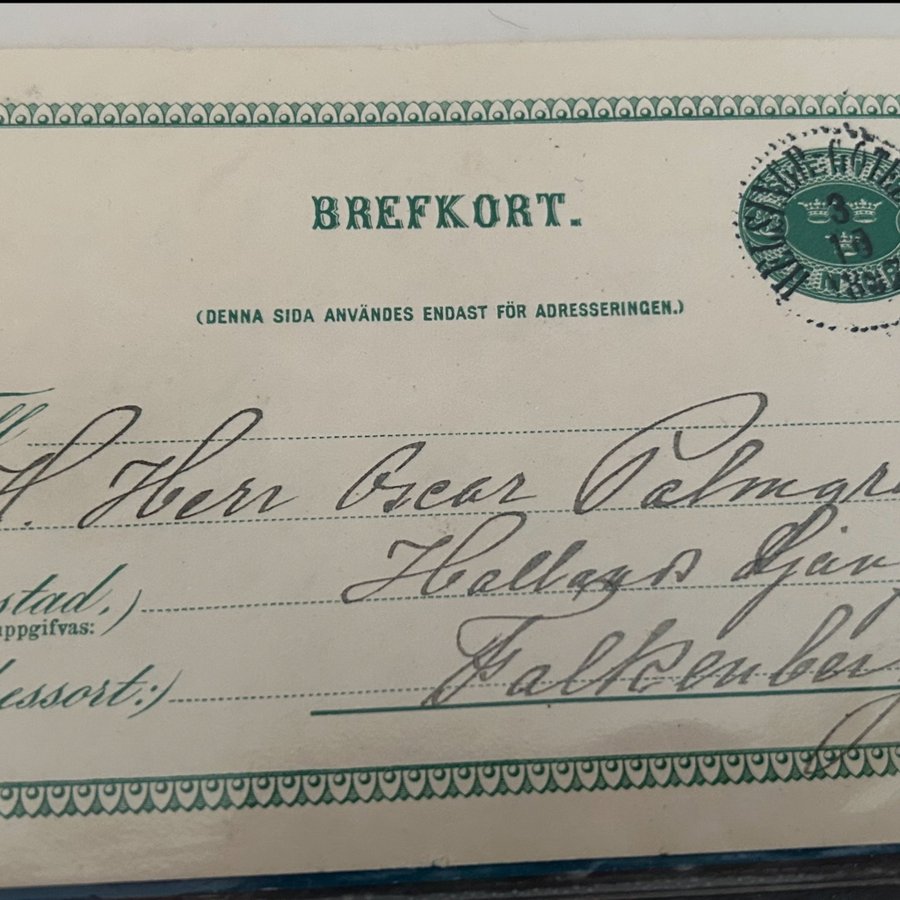 BREFKORT.
(DENNA SIDA ANVÄNDES ENDAST FÖR ADRESSERINGEN.)
HELSINGB. GÖTEB
3
10
Till
H. Herr Oscar Palmgre
Hallands
stad,)
uppgifvas:
Falkenberg
dessort:)